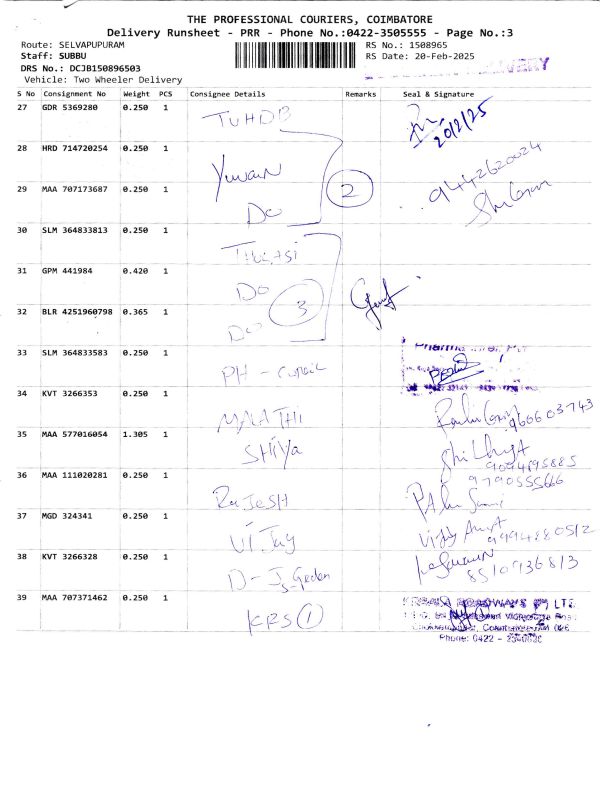 THE PROFESSIONAL COURIERS, COIMBATORE
Delivery Runsheet - PRR - Phone No.:0422-3505555 - Page No.:3
Route: SELVAPUPURAM
Staff: SUBBU
DRS No.: DCJB150896503
Vehicle: Two Wheeler Delivery
RS No.: 1508965
RS Date: 20-Feb-2025
S No Consignment No Weight PCS Consignee Details Remarks Seal & Signature
27 GDR 5369280 0.250 1 TUHDB 20/2/25
28 HRD 714720254 0.250 1 Yuwan 9442620024
29 MAA 707173687 0.250 1 Do 2
30 SLM 364833813 0.250 1 THULASI
31 GPM 441984 0.420 1 Do 3
32 BLR 4251960798 0.365 1 Do
33 SLM 364833583 0.250 1 PH -
34 KVT 3266353 0.250 1 MALATHI
35 MAA 577016054 1.305 1 SHIYA
36 MAA 111020281 0.250 1 RAJESH 9790555666
37 MGD 324341 0.250 1 VIJAY 9994880512
38 KVT 3266328 0.250 1 D - 8510936813
39 MAA 707371462 0.250 1 KRS 1
Phone: 0422 -